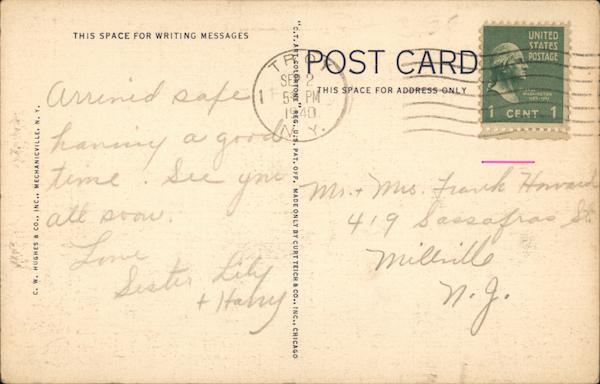 THIS SPACE FOR WRITING MESSAGES
Arrived safe
having a good
time. See you
all soon.
Love
Sister Lily
+ Harry
C. W. HUGHES & CO., INC., MECHANICVILLE, N. Y.
"C.T. ART-COLORTONE" REG. U.S. PAT. OFF. MADE ONLY BY CURT TEICH & CO., INC., CHICAGO
POST CARD
THIS SPACE FOR ADDRESS ONLY
TROY
SEP 2
1
5 PM
1940
N.Y.
UNITED
STATES
POSTAGE
WASHINGTON
1 CENT 1
Mr. + Mrs. Frank Howard
419 Sassafras St.
Millville
N. J.